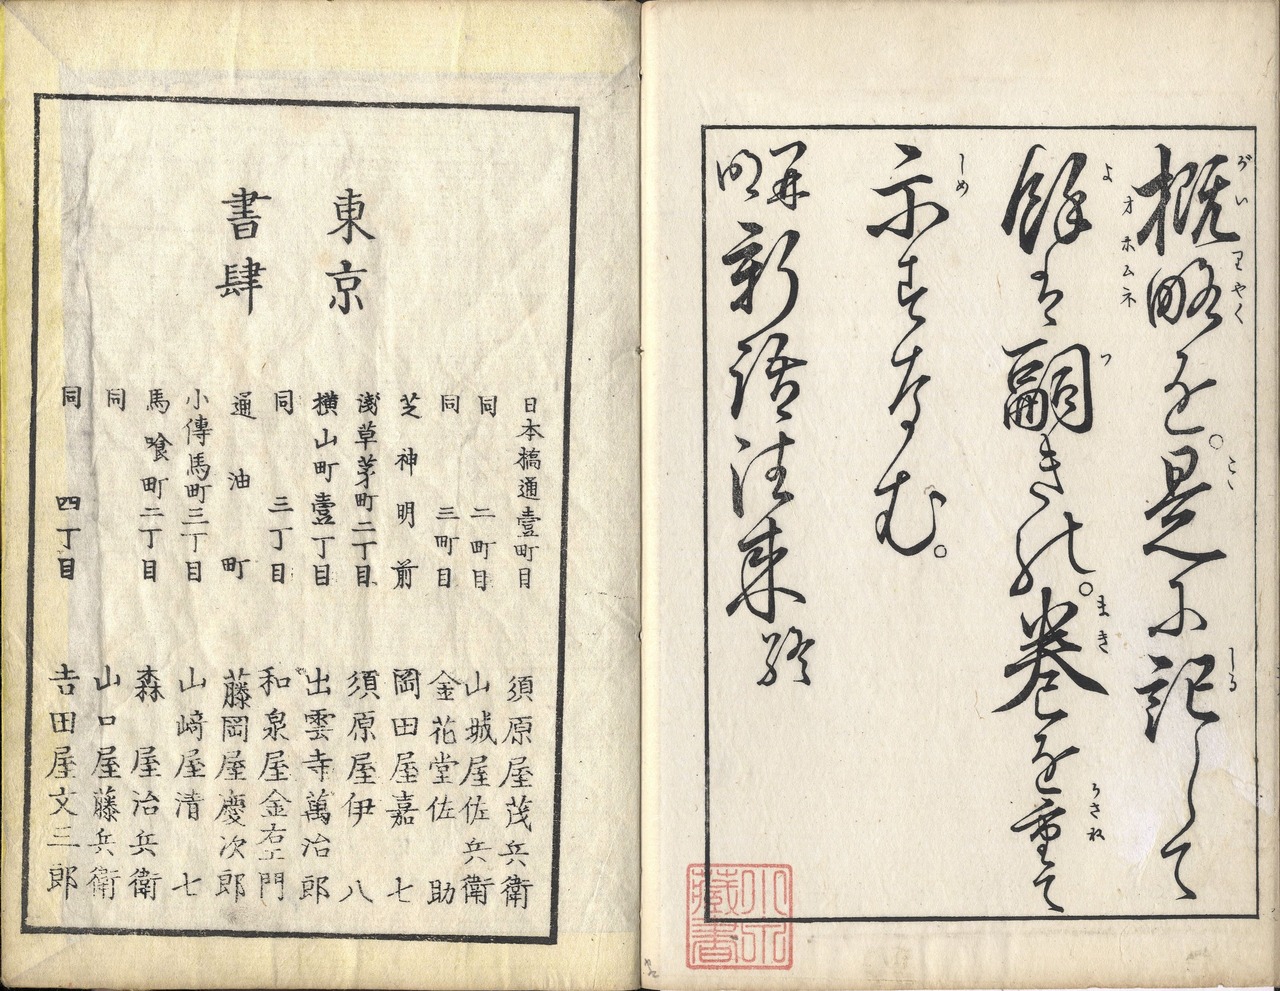 概略を。是に記して
餘は嗣きの。巻を重て
示すなむ。
開明新語往来終
東京
書肆
日本橋通壹町目 須原屋茂兵衛
同 二町目 山城屋佐兵衛
同 三町目 金花堂佐助
芝神明前 岡田屋嘉七
淺草茅町二丁目 須原屋伊八
横山町壹丁目 出雲寺萬治郎
同 三丁目 和泉屋金右エ門
通油町 藤岡屋慶次郎
小傳馬町三丁目 山﨑屋清七
馬喰町二丁目 森屋治兵衛
同 山口屋藤兵衛
同 四丁目 吉田屋文三郎